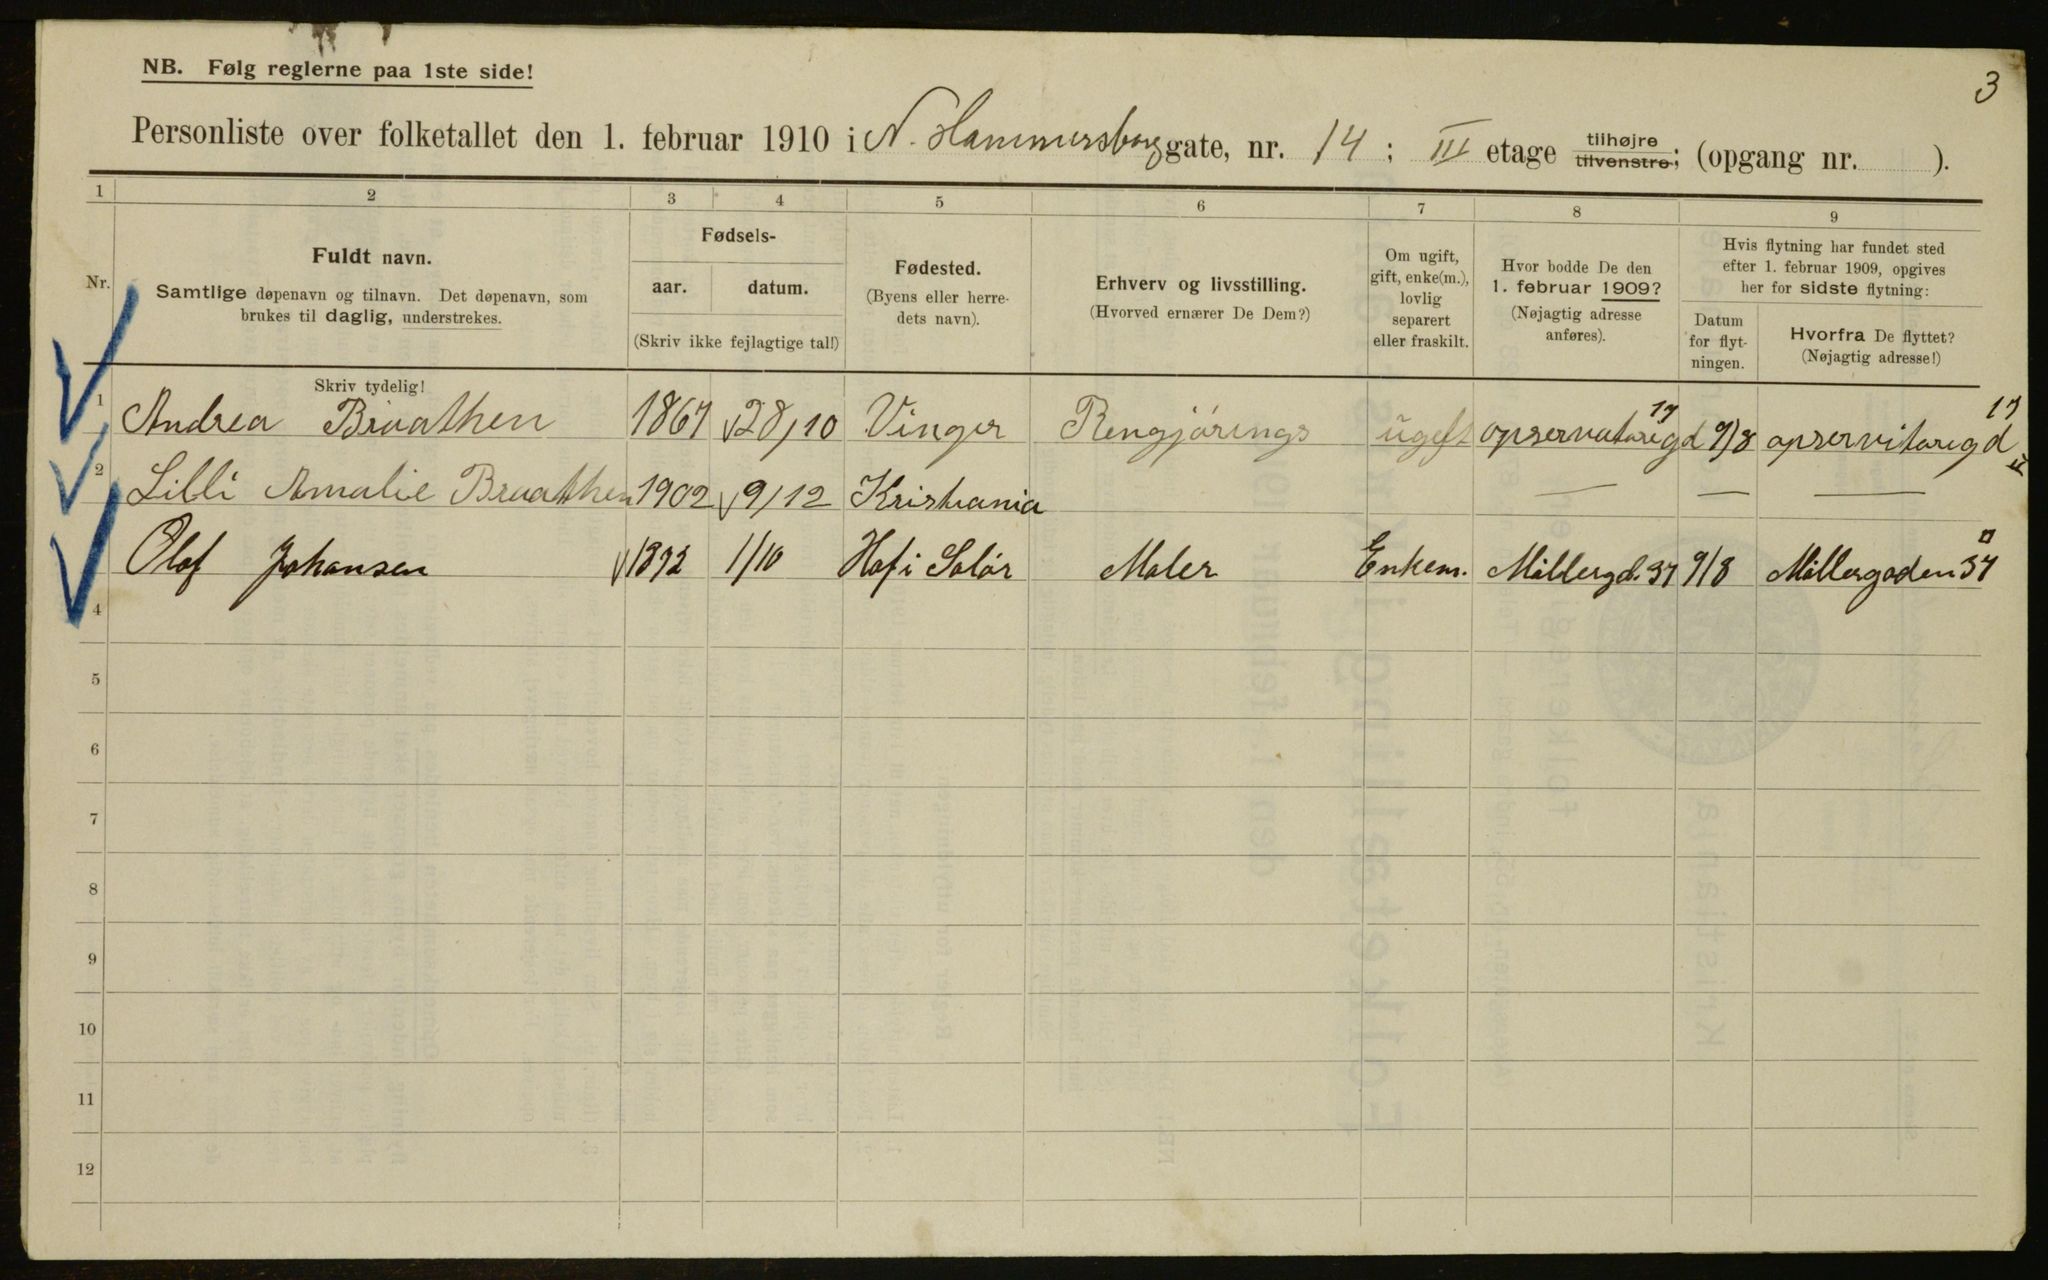 3
NB. Følg reglerne paa 1ste side!
Personliste over folketallet den 1. februar 1910 i N. Hammersborg gate, nr. 14 ; III etage tilhøjre tilvenstre; (opgang nr. ).
1 2 3 4 5 6 7 8 9
Nr.
Fuldt navn.
Samtlige døpenavn og tilnavn. Det døpenavn, som
brukes til daglig, understrekes.
Skriv tydelig!
Fødsels-
aar. datum.
(Skriv ikke fejlagtige tal!)
Fødested.
(Byens eller herre-
dets navn).
Erhverv og livsstilling.
(Hvorved ernærer De Dem?)
Om ugift,
gift, enke(m.),
lovlig
separert
eller fraskilt.
Hvor bodde De den
1. februar 1909?
(Nøjagtig adresse
anføres).
Hvis flytning har fundet sted
efter 1. februar 1909, opgives
her for sidste flytning:
Datum
for flyt-
ningen.
Hvorfra De flyttet?
(Nøjagtig adresse!)
1 Andrea Braathen 1867 28/10 Vinger Rengjørings ugift opservatorigd 17 9/8 opservitorigd 17
2 Lilli Amalie Braathen 1902 9/12 Kristiania — — —
Olaf Johansen 1892 1/10 Hof i Solør Maler Enkem. Møllergd. 37 9/8 Møllergaden 37
4
5
6
7
8
9
10
11
12